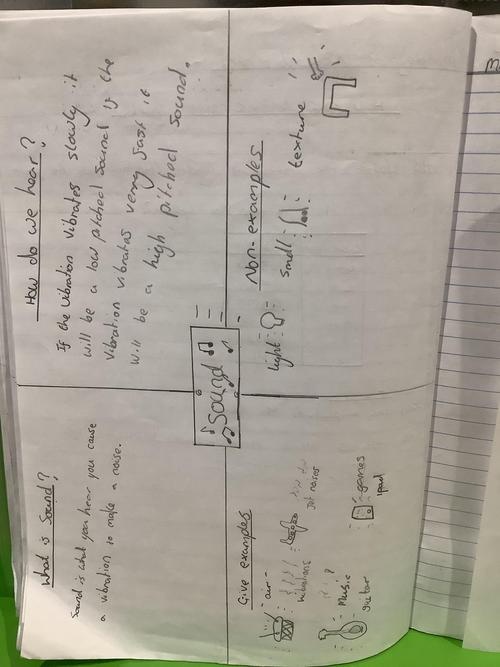 What is Sound?
Sound is what you hear you cause
a vibration to make a noise.
How do we hear?
If the vibration vibrates slowly it
will be a low pitched sound if the
vibration vibrates verry fast it
will be a high pitched sound.
Sound
Give examples
air
vibrations
jet noises
Music
guitar
games
ipad
Non-examples
light
smell
texture